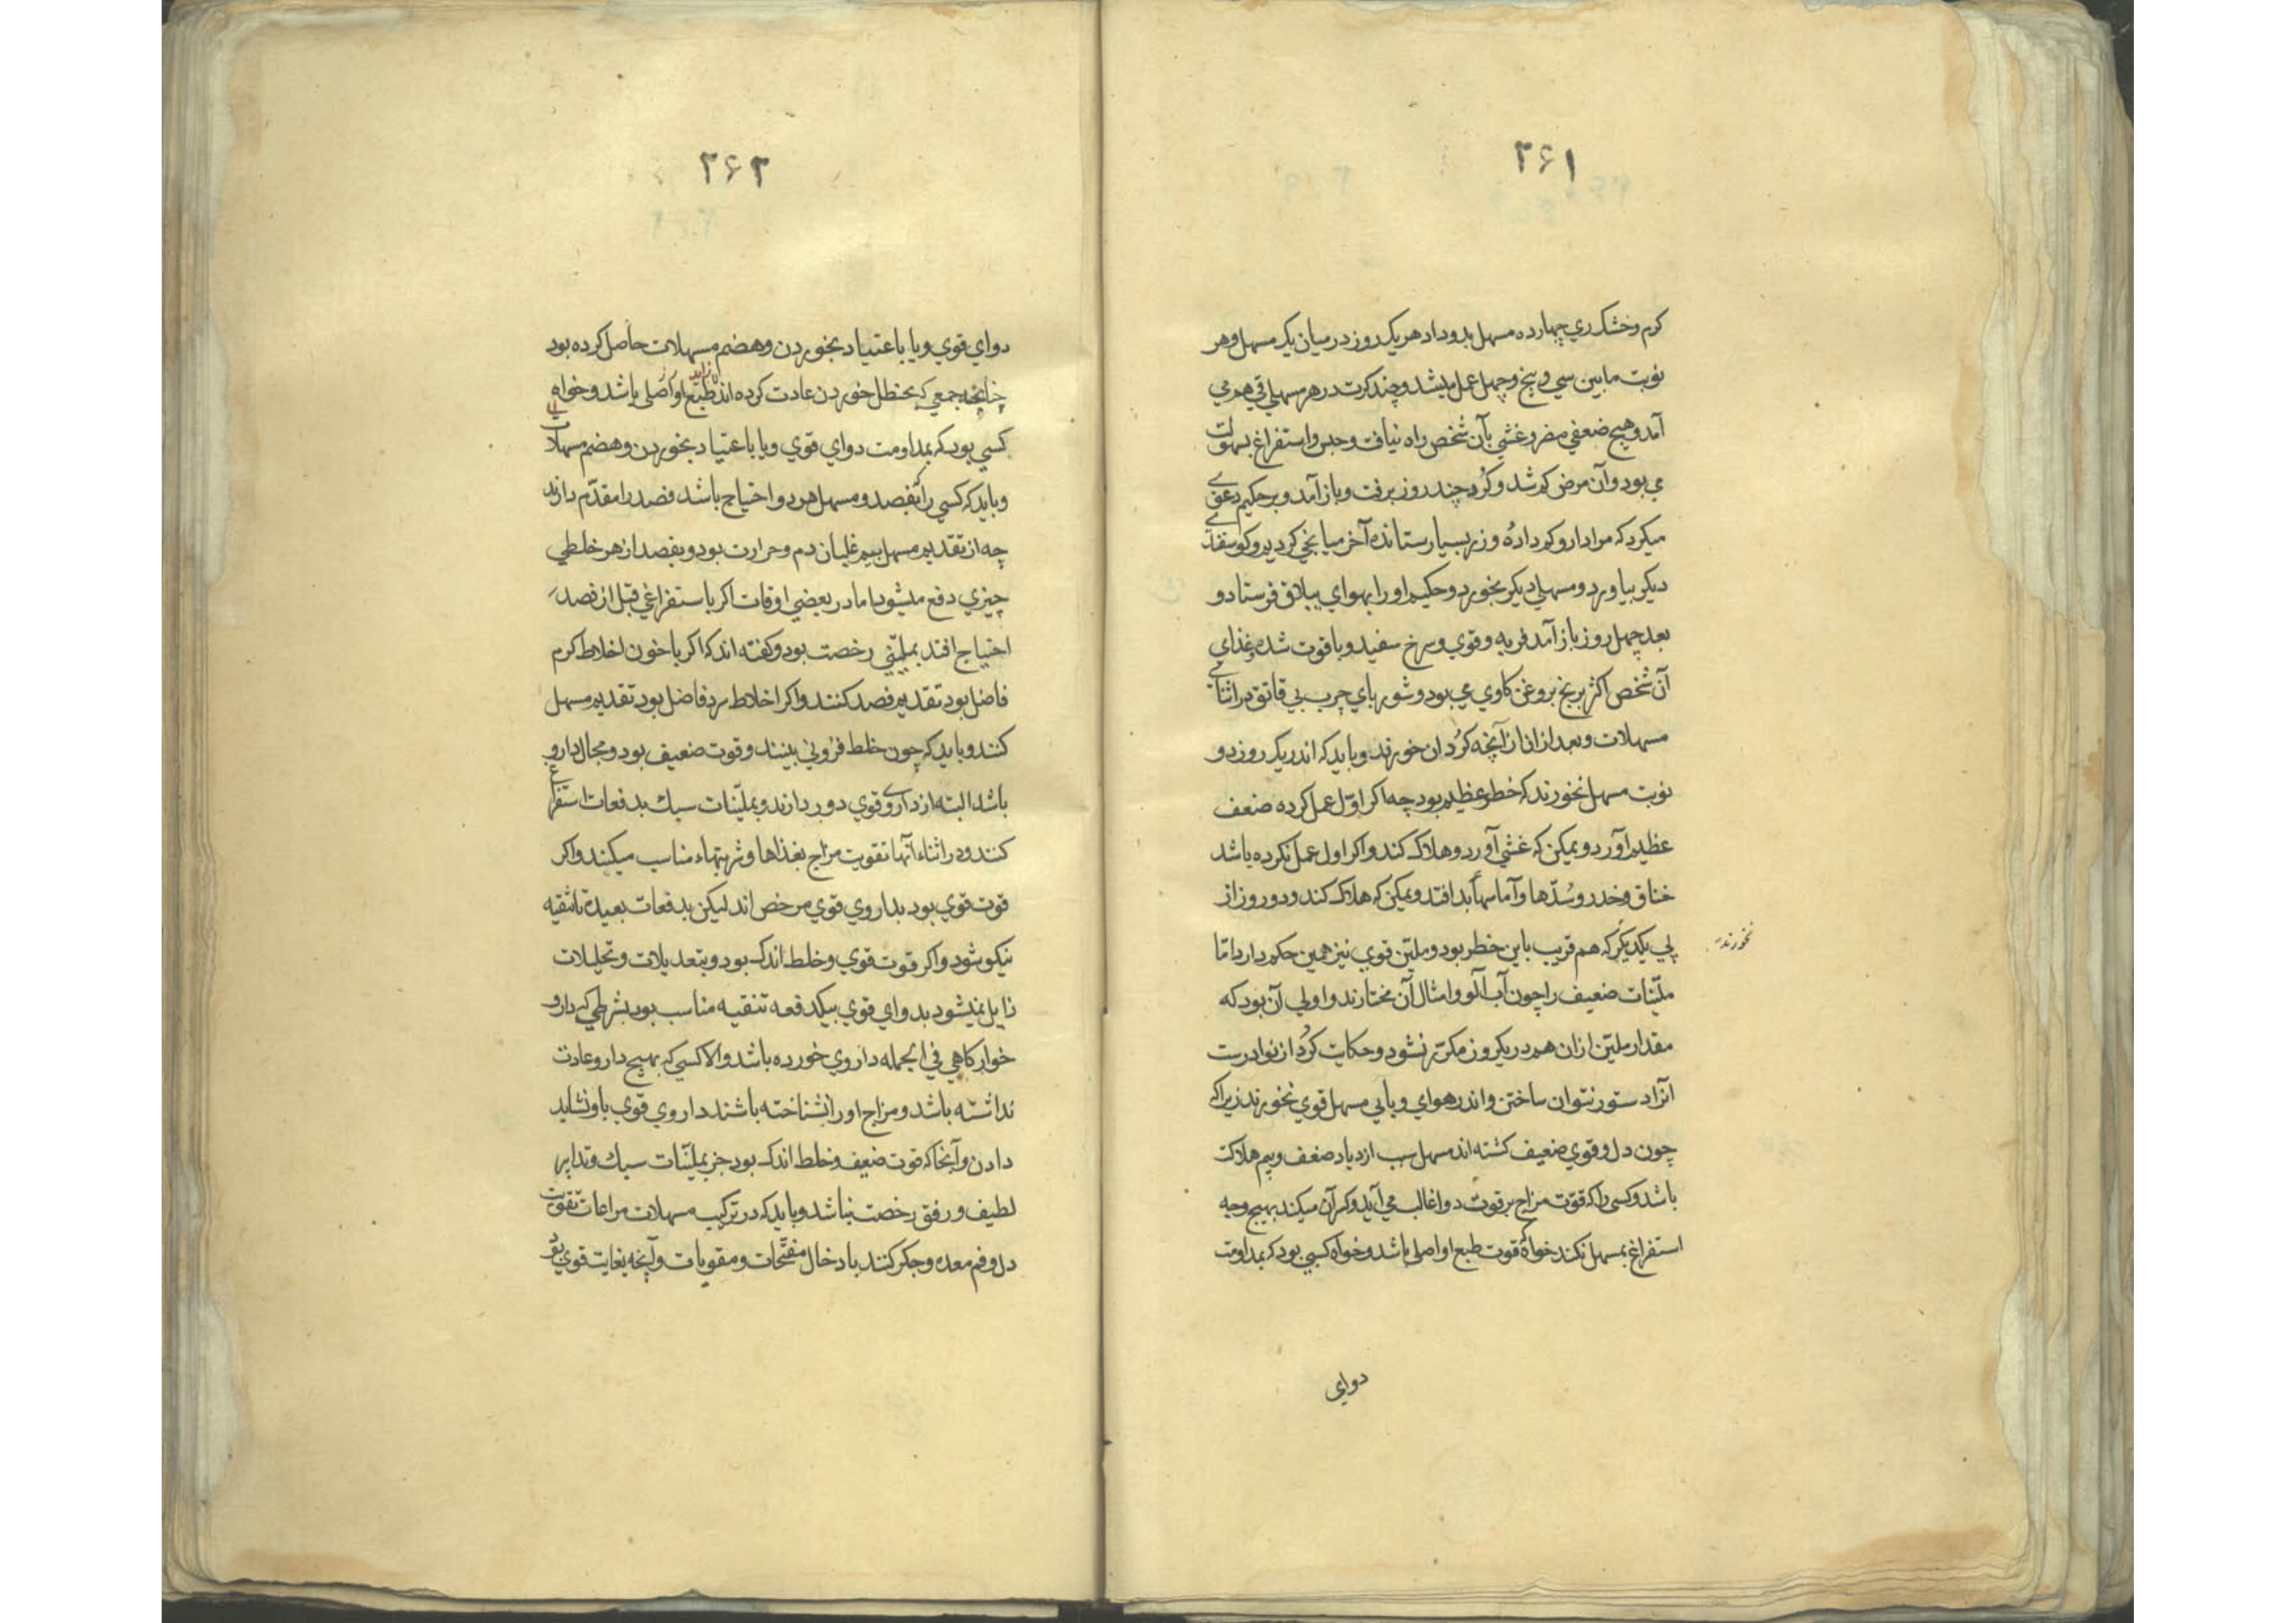 ۳۶۱
کرم وخشک ري چهارده مسهل بدو داد هر یک روز در میان یک مسهل وهر
نوبت مابین سي و پنج و چهل عمل میشد و چند کرت در هر مسهلي قي هم مي
آمد و هیچ ضعفي مفرط وغشي بآن شخص راه نیافت و حبس و استفراغ بسهولت
مي بود و آن مرض کم شد و کرد چند روز برفت و باز آمد و بر حکیم دعوي
میکرد که مرا دارو کم داده و زر بسیار ستانده آخر میانجي کردیم و کوسفندي
دیکر بیاورد و مسهلي دیکر بخورد و حکیم او را بهواي ییلاق فرستاد و
بعد چهل روز باز آمد فربه و قوي و سرخ سفید و با قوت شده و غذاي
آن شخص اکثر برنج بروغن کاوي مي بود و شورباي چرب بي قاتق در اثناي
مسهلات و بعد ازان از آنچه کردان خورند و باید که اندر یک روز دو
نوبت مسهل نخورند که خطر عظیم بود چه اکر اول عمل کرده ضعف
عظیم آورد و یمکن که غشي آورد و هلاک کند و اکر اول عمل نکرده باشد
خناق و خدر و سُدّها و آماسها بد افتد و یمکن که هلاک کند و دو روز از
پي یکدیکر که هم قریب باین خطر بود و ملیّن قوي نیز همین حکم دارد امّا
نخورند
ملیّنات ضعیف را چون آب آلو و امثال آن مختارند و اولي آن بود که
مقدار ملیّن ازان هم در یکروز مکرّر نشود و حکایت کُرد از نوادرست
آنرا دستور نتوان ساختن و اندر هواي وبایي مسهل قوي نخورند زیرا که
چون دل و قوي ضعیف کشته اند مسهل سبب ازدیاد ضعف و بیم هلاکت
باشد و کسی را که قوّت مزاج بر قوت دوا غالب مي آید و کم آن میکند بهیچ وجه
استفراغ بمسهل نکند خواه قوت طبع او اصلي باشد و خواه کسي بود که بمداومت
دوای
۳۶۲
دواي قوي و یا باعتیاد بخوردن و هضم مسهلات حاصل کرده بود
چنانچه جمعي که بحنظل خوردن عادت کرده اند طبع او اصلي باشد و خواه
کسي بود که بمداومت دواي قوي و یا باعتیاد بخوردن و هضم مسهلات
و باید که کسي را بفصد و مسهل هر دو احتیاج باشد فصد را مقدّم دارند
چه از تقدیم مسهل بیم غلیان دم و حرارت بود و بفصد از هر خلطي
چیزي دفع میشود اما در بعضي اوقات اکر باستفراغي قبل از فصد
احتیاج افتد بملیّني رخصت بود و کفته اند که اکر با خون اخلاط کرم
فاضل بود تقدیم فصد کنند و اکر اخلاط سرد فاضل بود تقدیم مسهل
کنند و باید که چون خلط فزوني بینند و قوت ضعیف بود و مجال دارو
باشد البته از داروي قوي دور دارند و بملیّنات سبك بدفعات استفراغ
کنند و در اثناء آنها تقویت مزاج بغذاها و شربتهاء مناسب میکنند و اکر
قوت قوي بود بداروي قوي مرخص اند لیکن بدفعات بعیده تا تنقیه
نیکو شود و اکر قوت قوي و خلط اندک بود و بتعدیلات و تحلیلات
زایل نمیشود بدواي قوي بیکدفعه تنقیه مناسب بود بشرطي که دارو
خوار کاهي في الجمله داروي خورده باشد و الا کسي که بهیچ دارو عادت
نداشته باشد و مزاج او را نشناخته باشند داروي قوي باو نشاید
دادن و آنجا که قوت ضعیف و خلط اندک بود جز بملیّنات سبك و تدابیر
لطیف و رفق رخصت نباشد و باید که در ترکیب مسهلات مراعات تقویت
دل و فم معده و جکر کنند بادخال مفتّحات و مقویات و آنچه بغایت قوي بود